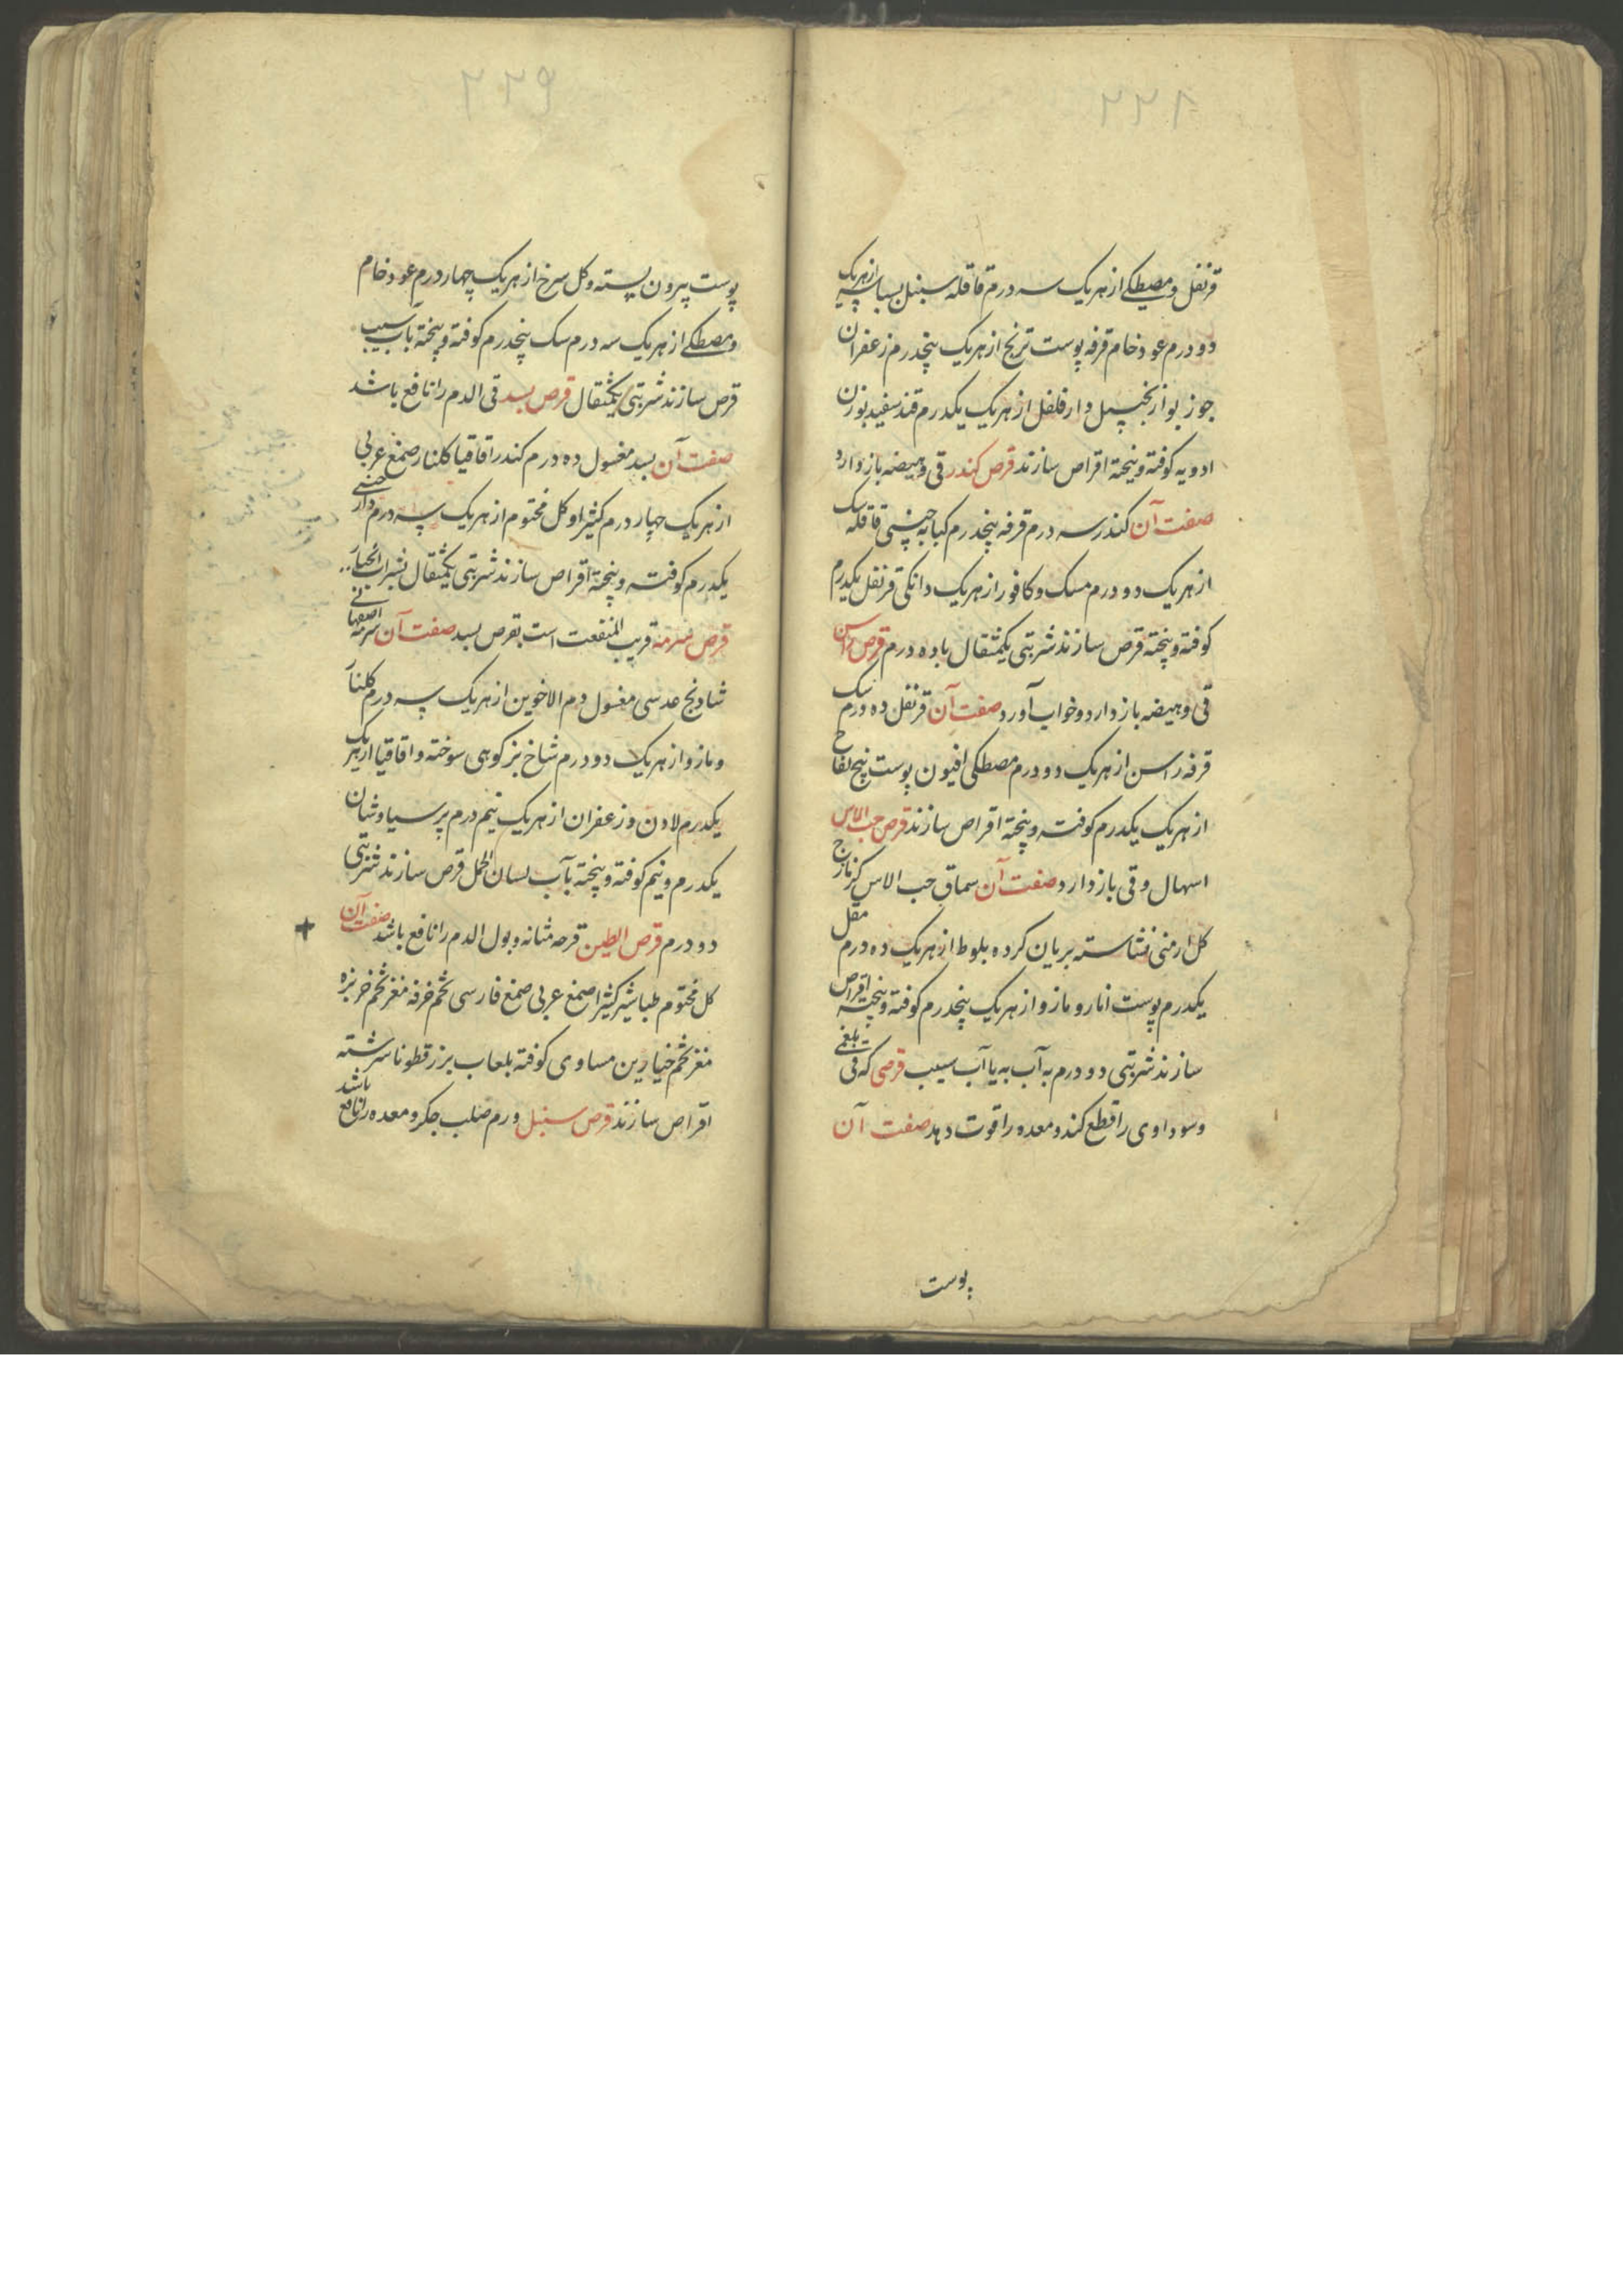 قرنفل و مصطکی از هر یک سه درم قاقله سنبل بسباسه از هر یک
دو درم عود خام قرفه پوست ترنج از هر یک پنجدرم زعفران
جوز بوا زنجبیل دار فلفل از هر یک یکدرم قند سفید بوزن
ادویه کوفته و بیخته اقراص سازند قرص کندر قی و هیضه باز دارد
صفت آن کندر سه درم قرفه پنجدرم کبابه چینی قاقله سک
از هر یک دو درم مسک و کافور از هر یک دانکی قرنفل یکدرم
کوفته و بیخته قرص سازند شربتی یکمثقال با ده درم قرص راسن
قی و هیضه باز دارد و خواب آورد صفت آن قرنفل ده درم سک
قرفه راسن از هر یک دو درم مصطکی افیون پوست بیخ تفاح
از هر یک یکدرم کوفته و بیخته اقراص سازند قرص حب الاس
اسهال و قی باز دارد صفت آن سماق حب الاس کزمازج
کل ارمنی نشاسته بریان کرده بلوط از هر یک ده درم مقل
یکدرم پوست انار و مازو از هر یک پنجدرم کوفته و بیخته اقراص
سازند شربتی دو درم به آب به یا آب سیب قرصی که قی بلغمی
و سوداوی را قطع کند و معده را قوت دهد صفت آن
پوست
پوست بیرون پسته و کل سرخ از هر یک چهار درم عود خام
و مصطکی از هر یک سه درم سک پنجدرم کوفته و بیخته بآب سیب
قرص سازند شربتی یکمثقال قرص بسد قی الدم را نافع باشد
صفت آن بسد مغسول ده درم کندر اقاقیا کلنار صمغ عربی
از هر یک چهار درم کثیرا و کل مختوم از هر یک سه درم دارچینی
یکدرم کوفته و بیخته اقراص سازند شربتی یکمثقال بشراب انجبار
قرص سرمه قریب المنفعت است بقرص بسد صفت آن سرمه اصفهانی
شادنج عدسی مغسول دم الاخوین از هر یک سه درم کلنار
و مازو از هر یک دو درم شاخ بز کوهی سوخته و اقاقیا از هر یک
یکدرم لادن و زعفران از هر یک نیم درم پرسیاوشان
یکدرم و نیم کوفته و بیخته بآب لسان الحمل قرص سازند شربتی
دو درم قرص الطین قرحه مثانه و بول الدم را نافع باشد صفت آن
کل مختوم طباشیر کثیرا صمغ عربی صمغ فارسی تخم خرفه مغز تخم خربزه
مغز تخم خیارین مساوی کوفته بلعاب بزرقطونا سرشته
اقراص سازند قرص سنبل ورم صلب جکر و معده را نافع باشد